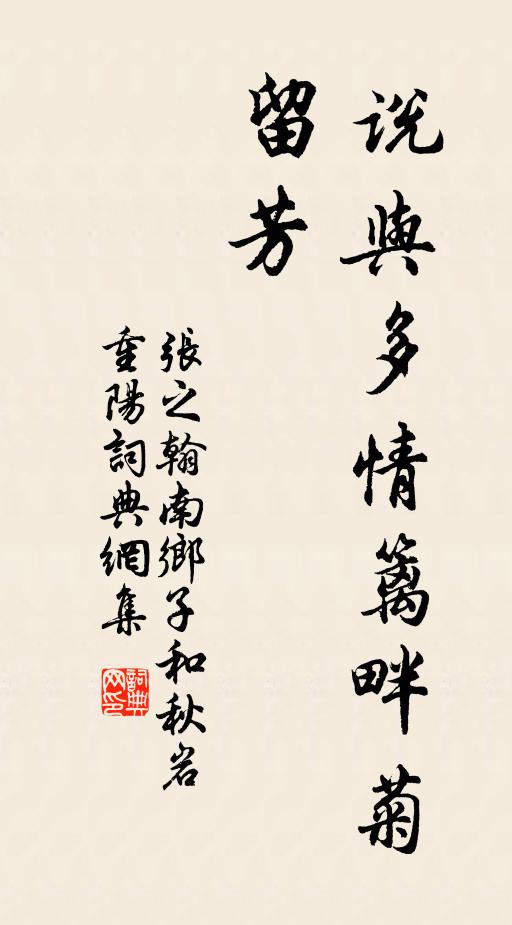 說與多情籬畔菊
留芳
張之翰南鄉子和秋岩
重陽詞典網集
詞典
网印